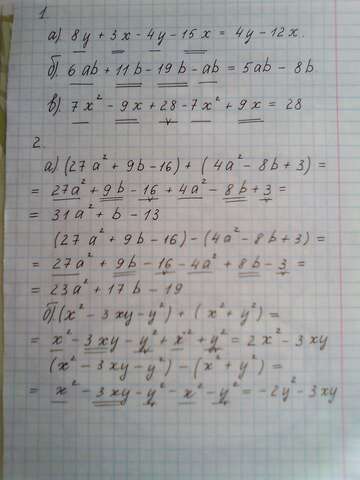 1.
а) 8y + 3x - 4y - 15x = 4y - 12x.
б) 6ab + 11b - 19b - ab = 5ab - 8b
в) 7x² - 9x + 28 - 7x² + 9x = 28
2.
а) (27a² + 9b - 16) + (4a² - 8b + 3) =
= 27a² + 9b - 16 + 4a² - 8b + 3 =
= 31a² + b - 13
(27a² + 9b - 16) - (4a² - 8b + 3) =
= 27a² + 9b - 16 - 4a² + 8b - 3 =
= 23a² + 17b - 19
б) (x² - 3xy - y²) + (x² + y²) =
= x² - 3xy - y² + x² + y² = 2x² - 3xy
(x² - 3xy - y²) - (x² + y²) =
= x² - 3xy - y² - x² - y² = -2y² - 3xy